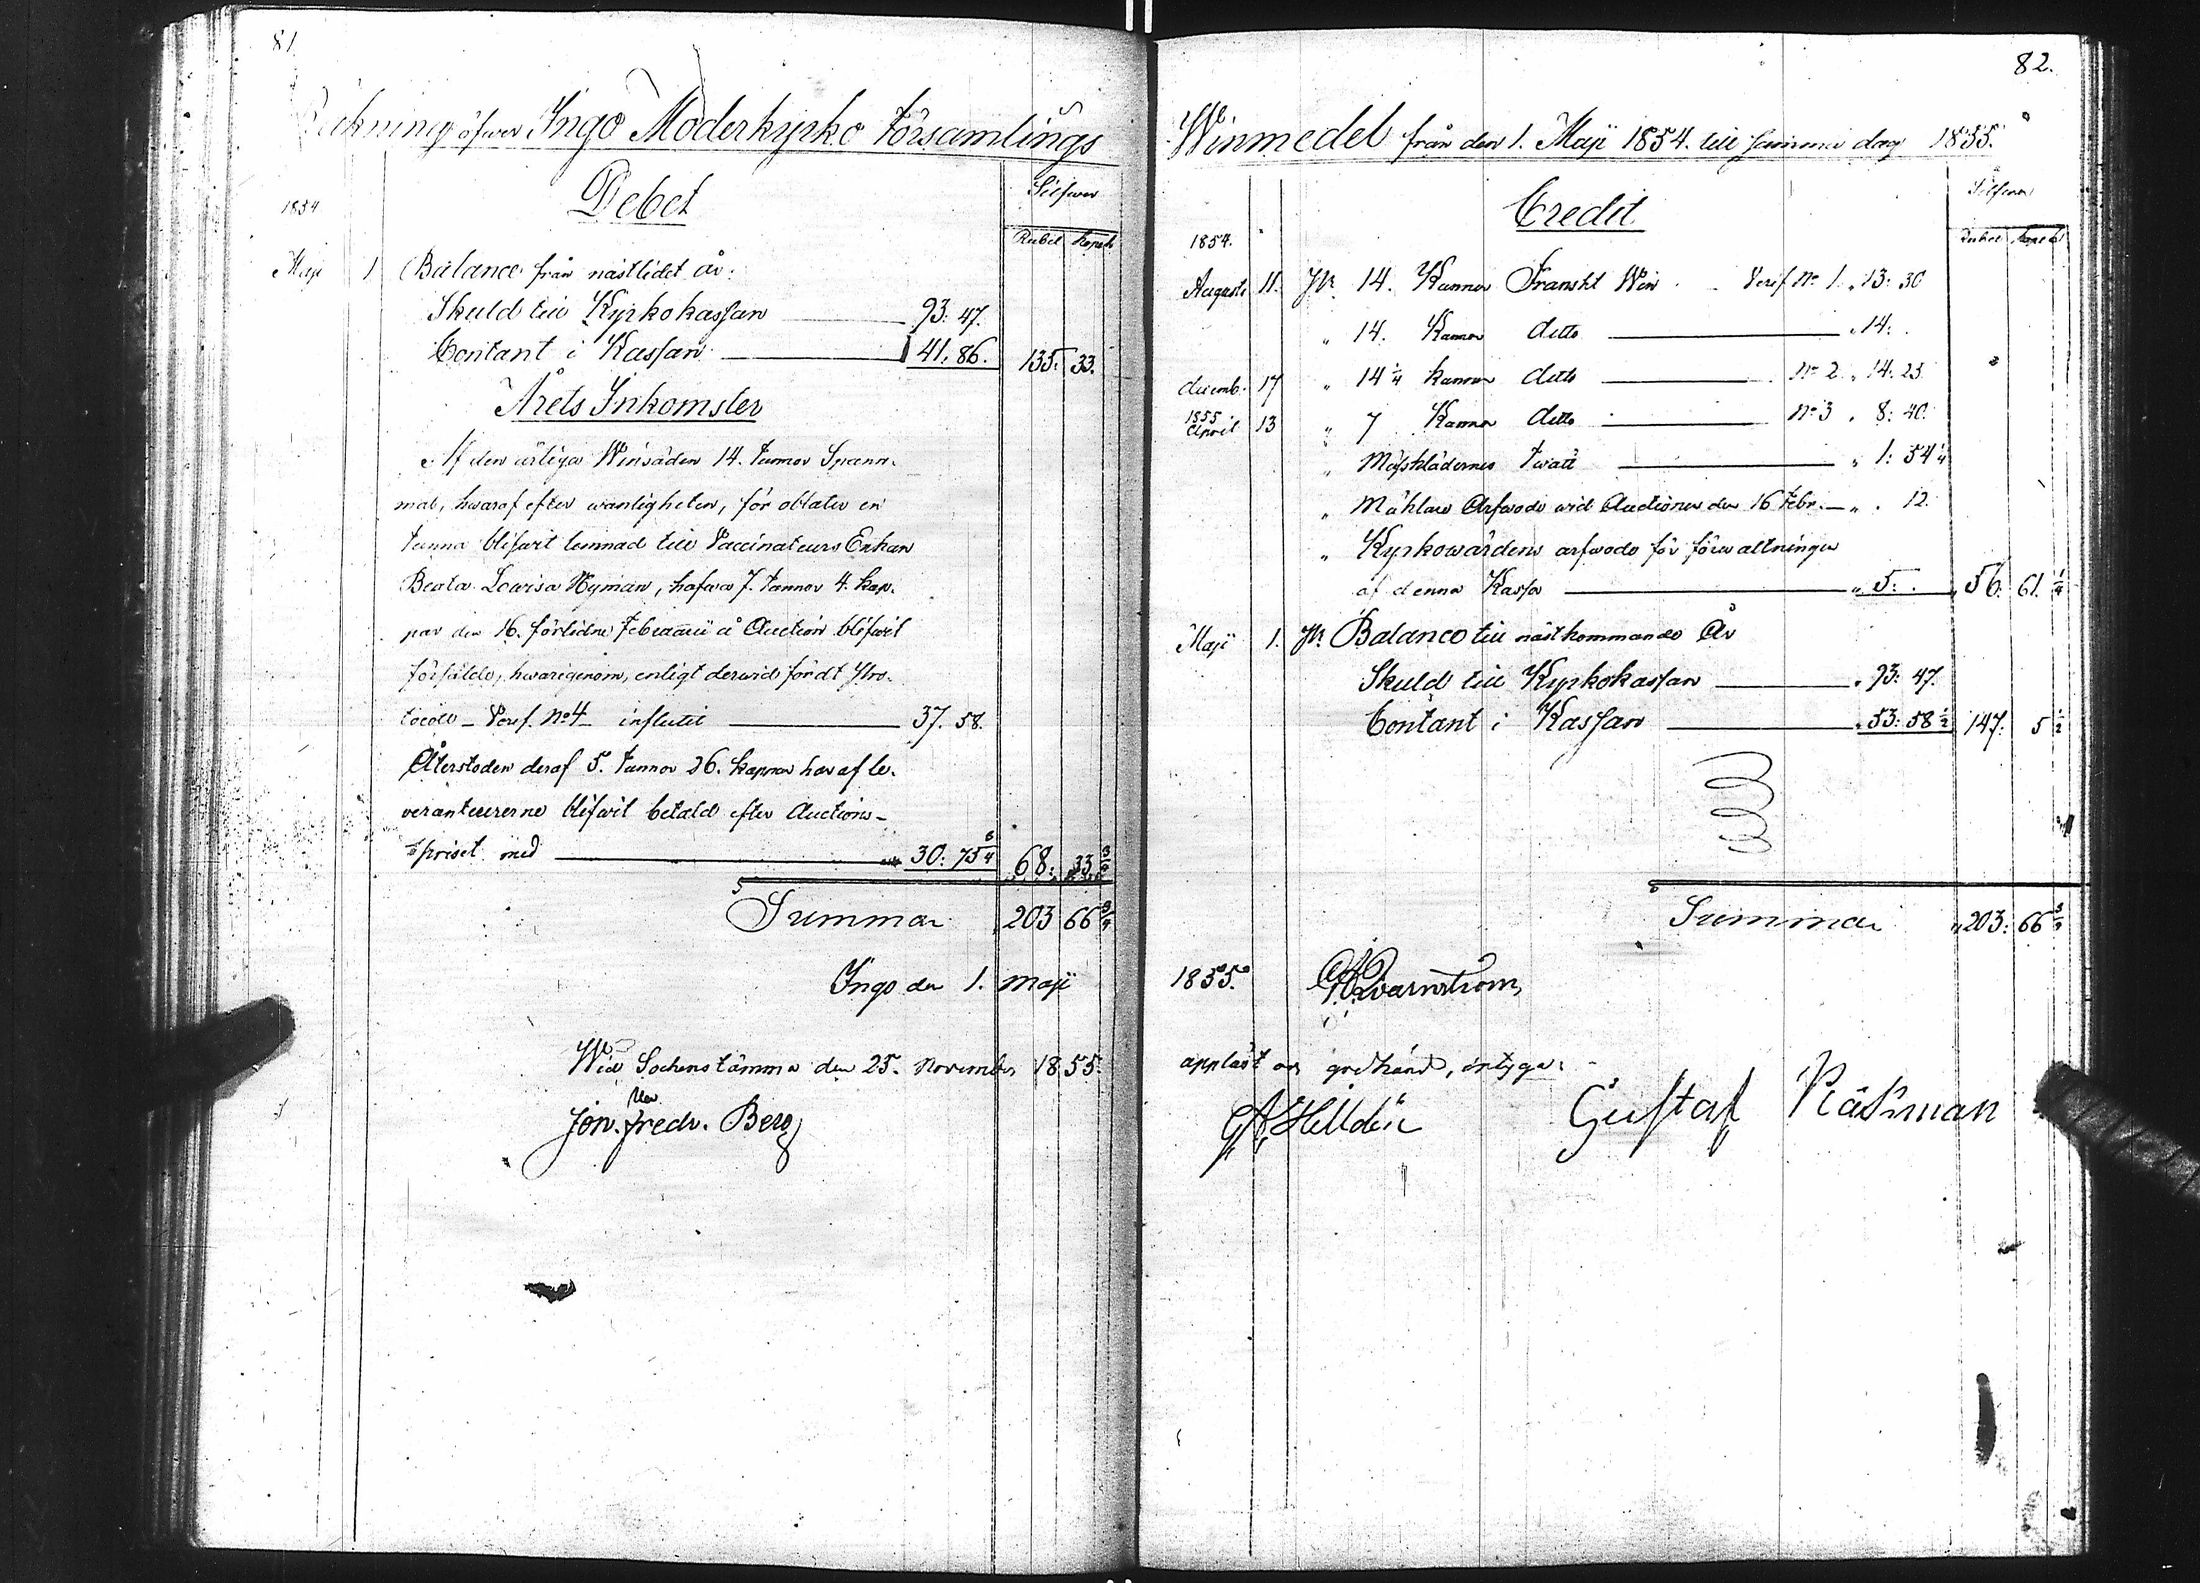 81.
Räkning öfwer Ingo Moderkyrko Församlings
Debet
Silfwer
Rubel Kopek
1854
Maji 1 Balance från nästlidet år:
Skuld till Kyrkokassan 93: 47.
Contant i Kassan 41. 86. 135. 33.
Årets Inkomster
Af den årliga Winsäden 14. tunnor Spann-
mål, hwaraf efter wanligheten, för oblater en
tunna blifwit lemnad till Vaccinateurs Enkan
Beata Lovisa Nyman, hafwa 7. tunnor 4. kap-
par den 16. förlidne Februarii å Auction blifwit
försålde, hwarigenom, enligt derwid fördt Pro-
tocoll - Verif. No 4 - influtit 37. 58.
Återstoden deraf 5. tunnor 26. kappar har af le-
veranteurerne blifwit betald efter Auctions-
priset med 30: 75 3/4 68: 33 3/4
Summa 203 66 3/4
Ingo den 1. Maji
Wid Sockenstämma den 25. November 1855.
Jon. Fredr. Berg
82.
Winmedel från den 1. Maji 1854. till samma dag 1855.
Credit
Silfwer
Rubel Kopek
1854.
Augusti 11. Pr 14. Kannor Franskt Win Verif No 1. " 13: 30
" 14. Kannor ditto " 14: .
decemb. 17 " 14 1/4 kannor ditto No 2 " 14. 25
1855
April 13 " 7 Kannor ditto No 3 " 8: 40.
" Mässklädernes twätt " 1: 54 1/4
" Mäklare Arfwode wid Auctionen den 16 Febr. " . 12.
" Kyrkowärdens arfwode för förwaltningen
af denna Kassa " 5: . " 56: 61. 1/4
Maji 1. Pr Balance till nästkommande År
Skuld till Kyrkokassan " 93: 47.
Contant i Kassan " 53: 58 1/2 147: 5 1/2
Summa " 203: 66 3/4
1855. Qvarnström,
uppläst och godkänd, intyga:
G A Helldén Gustaf Råsman